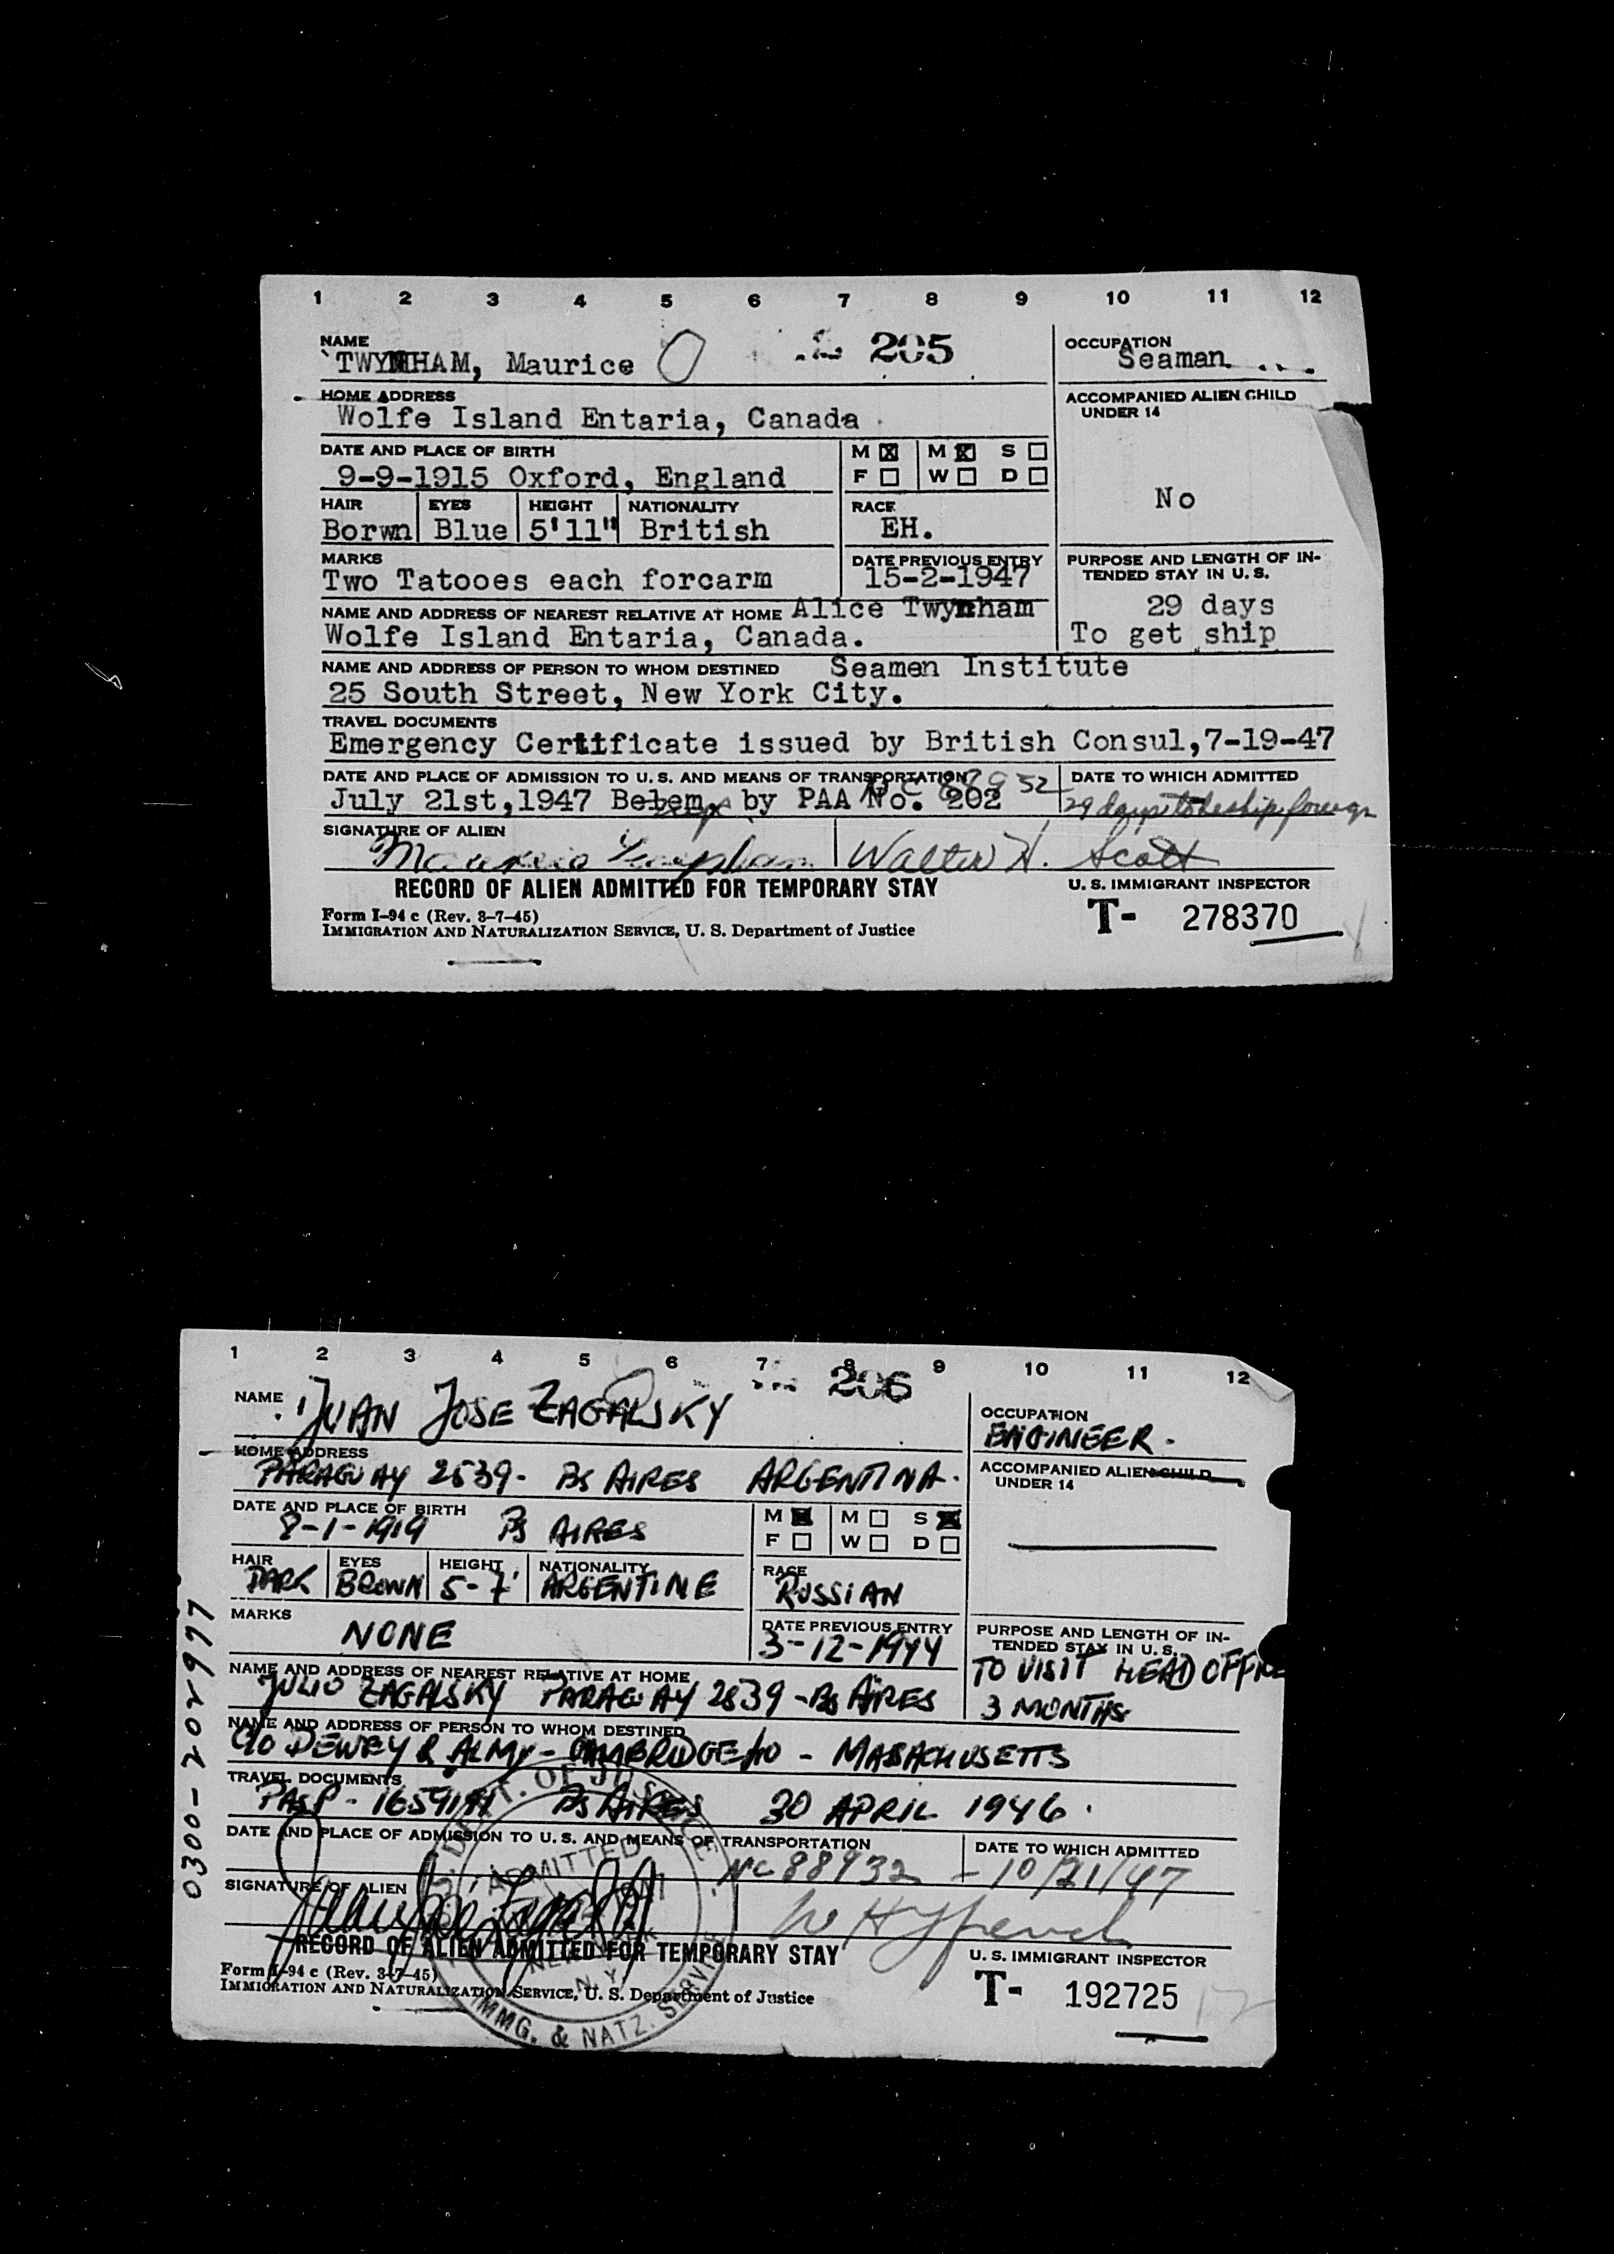 1 2 3 4 5 6 7 8 9 10 11 12
NAME
TWYNHAM, Maurice
205
OCCUPATION
Seaman
HOME ADDRESS
Wolfe Island Entaria, Canada
ACCOMPANIED ALIEN CHILD
UNDER 14
No
DATE AND PLACE OF BIRTH
9-9-1915 Oxford, England
M M S
F W D
HAIR EYES HEIGHT NATIONALITY RACE
Borwn Blue 5'11" British EH.
MARKS
Two Tatooes each forcarm
DATE PREVIOUS ENTRY
15-2-1947
PURPOSE AND LENGTH OF IN-
TENDED STAY IN U. S.
29 days
To get ship
NAME AND ADDRESS OF NEAREST RELATIVE AT HOME Alice Twynham
Wolfe Island Entaria, Canada.
NAME AND ADDRESS OF PERSON TO WHOM DESTINED Seamen Institute
25 South Street, New York City.
TRAVEL DOCUMENTS
Emergency Certificate issued by British Consul,7-19-47
DATE AND PLACE OF ADMISSION TO U. S. AND MEANS OF TRANSPORTATION
July 21st,1947 Belem, by PAA No. 202
DATE TO WHICH ADMITTED
29 days to reship foreign
SIGNATURE OF ALIEN
Maurice Twynham Walter H. Scott
RECORD OF ALIEN ADMITTED FOR TEMPORARY STAY
U. S. IMMIGRANT INSPECTOR
Form I-94 c (Rev. 3-7-45)
IMMIGRATION AND NATURALIZATION SERVICE, U. S. Department of Justice
T- 278370
1 2 3 4 5 6 7 8 9 10 11 12
206
NAME
JUAN JOSE ZAGALSKY
OCCUPATION
ENGINEER.
HOME ADDRESS
PARAGUAY 2539- Bs AIRES ARGENTINA.
ACCOMPANIED ALIEN CHILD
UNDER 14
DATE AND PLACE OF BIRTH
8-1-1919 Bs AIRES
M M S
F W D
HAIR EYES HEIGHT NATIONALITY RACE
DARK BROWN 5-7' ARGENTINE RUSSIAN
MARKS
NONE
DATE PREVIOUS ENTRY
3-12-1944
PURPOSE AND LENGTH OF IN-
TENDED STAY IN U. S.
TO VISIT HEAD OFFICE
3 MONTHS
NAME AND ADDRESS OF NEAREST RELATIVE AT HOME
JULIO ZAGALSKY PARAGUAY 2539 - Bs AIRES
NAME AND ADDRESS OF PERSON TO WHOM DESTINED
C/o DEWEY & ALMY - CAMBRIDGE 40 - MASACHUSETTS
TRAVEL DOCUMENTS
PASP- 1659191 Bs AIRES 30 APRIL 1946.
DATE AND PLACE OF ADMISSION TO U. S. AND MEANS OF TRANSPORTATION
NC 88932
DATE TO WHICH ADMITTED
- 10/21/47
SIGNATURE OF ALIEN
RECORD OF ALIEN ADMITTED FOR TEMPORARY STAY
U. S. IMMIGRANT INSPECTOR
Form I-94 c (Rev. 3-7-45)
IMMIGRATION AND NATURALIZATION SERVICE, U. S. Department of Justice
T- 192725
DEPT. OF JUSTICE
ADMITTED
NEW YORK
N. Y.
IMMG. & NATZ. SERVICE
0300-202977